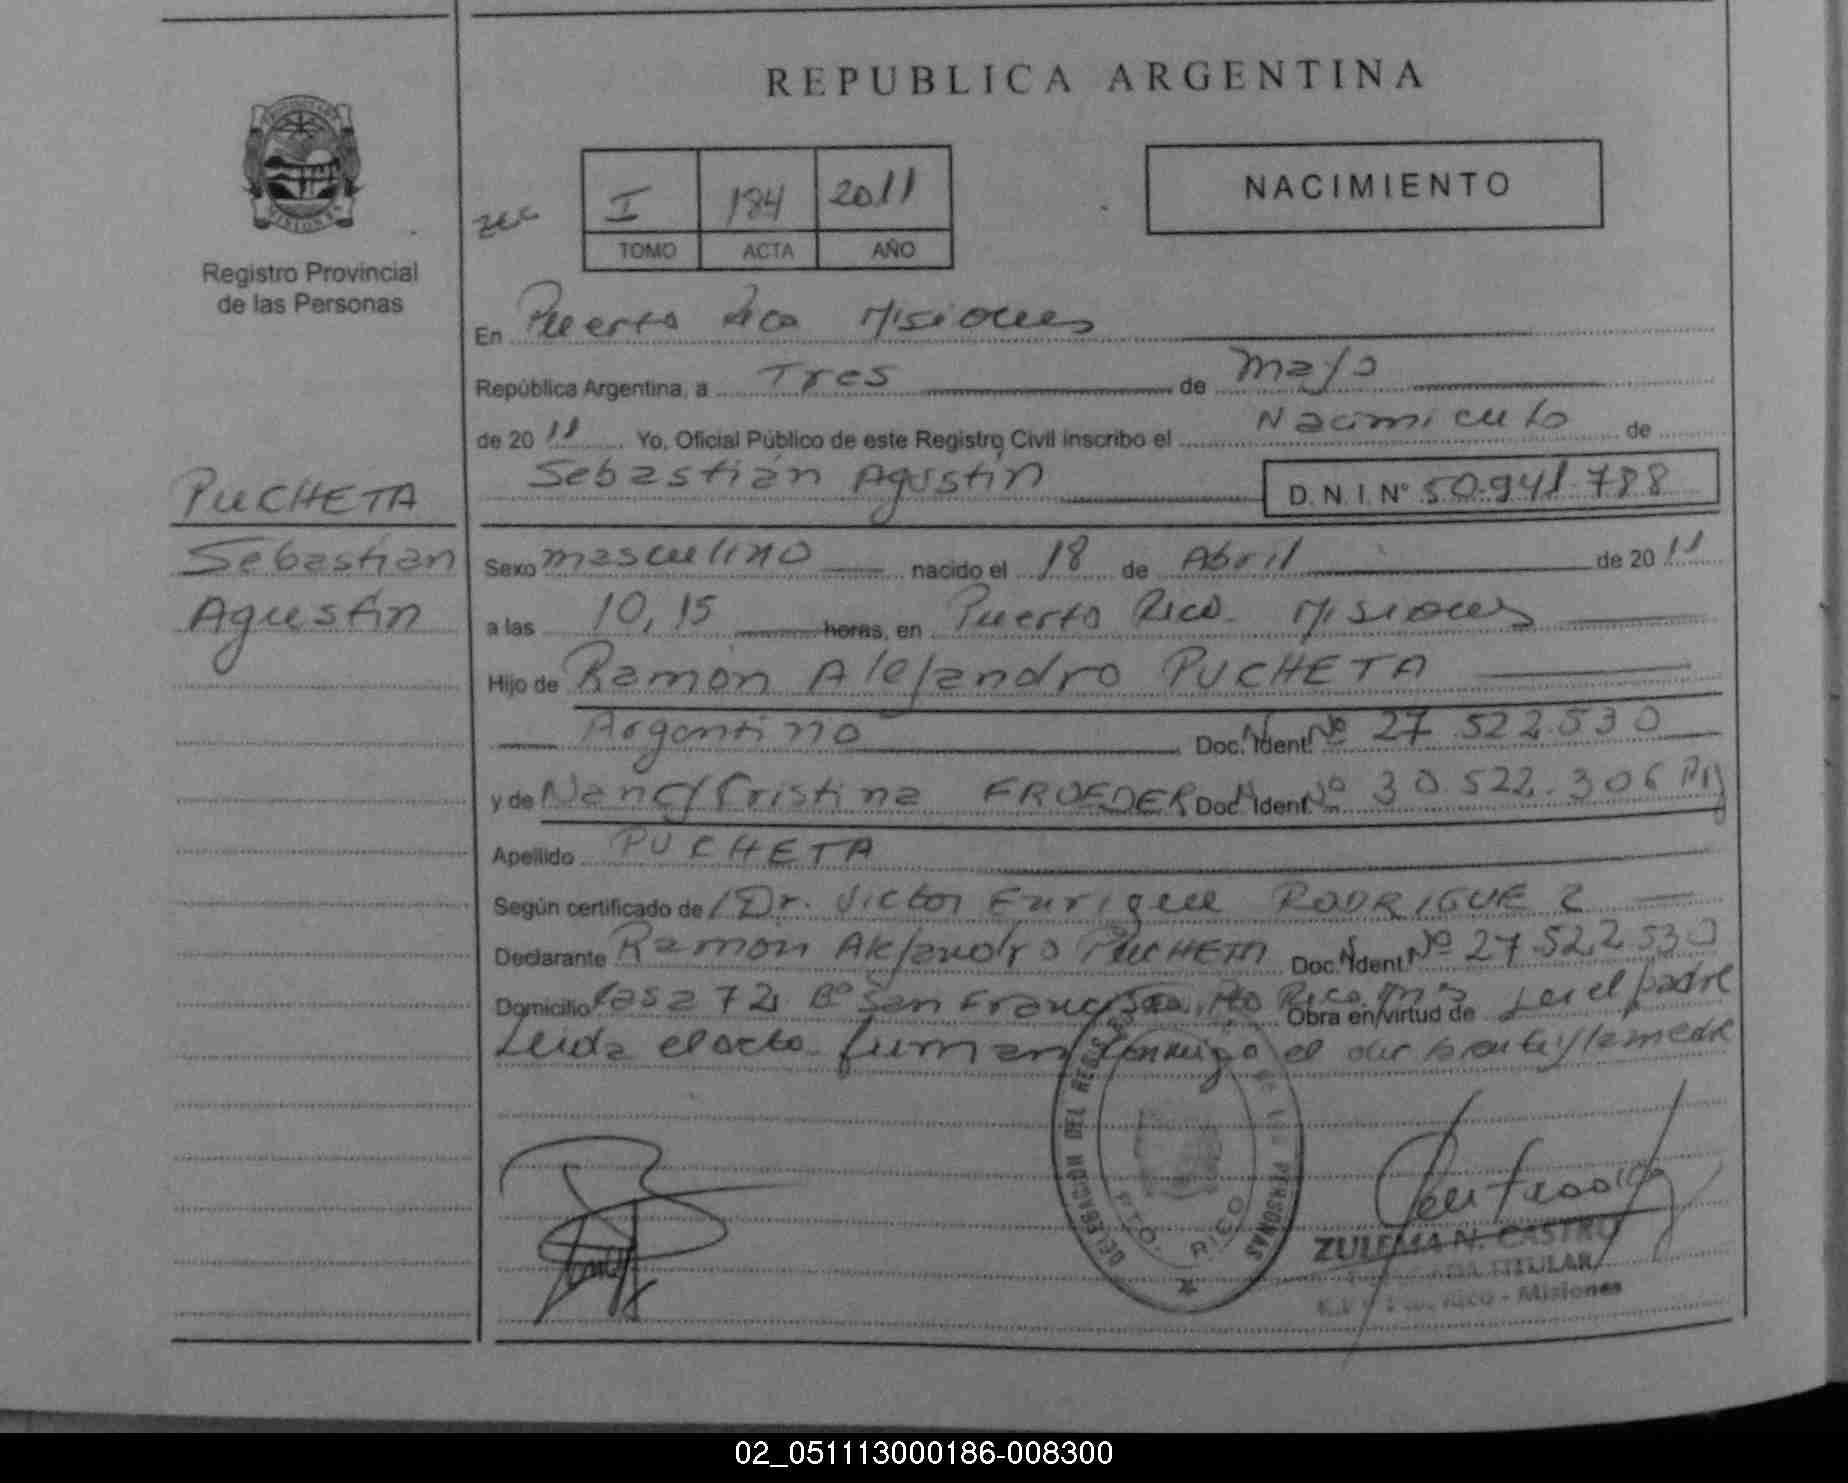 REPUBLICA ARGENTINA
Registro Provincial
de las Personas
I 184 2011
TOMO ACTA AÑO
NACIMIENTO
En Puerto Rico Misiones
República Argentina, a Tres de Mayo
de 2011 Yo, Oficial Público de este Registro Civil inscribo el Nacimiento de
Sebastián Agustín D.N.I. Nº 50.941.788
PUCHETA
Sebastian
Agustin
Sexo masculino nacido el 18 de Abril de 2011
a las 10,15 horas, en Puerto Rico. Misiones
Hijo de Ramón Alejandro PUCHETA
Argentino Doc. Ident. Nº 27.522.530
y de Nancy Cristina FROEDER Doc. Ident. Nº 30.522.306
Apellido PUCHETA
Según certificado de Dr. Victor Enrique RODRIGUEZ
Declarante Ramón Alejandro PUCHETA Doc. Ident. Nº 27.522.530
Domicilio Casa 72 Bº San Francisco, Pto Rico. Mns Obra en virtud de ser el padre
Leida el acta firman conmigo el declarante y la madre
DELEGACIÓN DEL REGISTRO DE LAS PERSONAS
PTO. RICO
ZULEMA N. CASTRO
TITULAR
Rico - Misiones
02_051113000186-008300